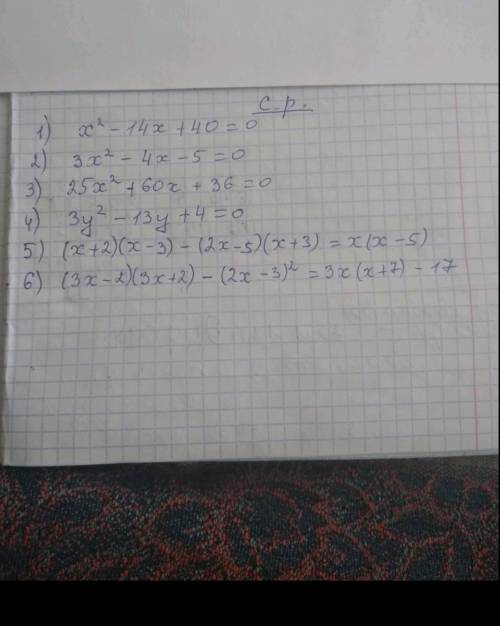 с.р.
1) x² - 14x + 40 = 0
2) 3x² - 4x - 5 = 0
3) 25x² + 60x + 36 = 0
4) 3y² - 13y + 4 = 0
5) (x+2)(x-3) - (2x-5)(x+3) = x(x-5)
6) (3x-2)(3x+2) - (2x-3)² = 3x(x+7) - 17